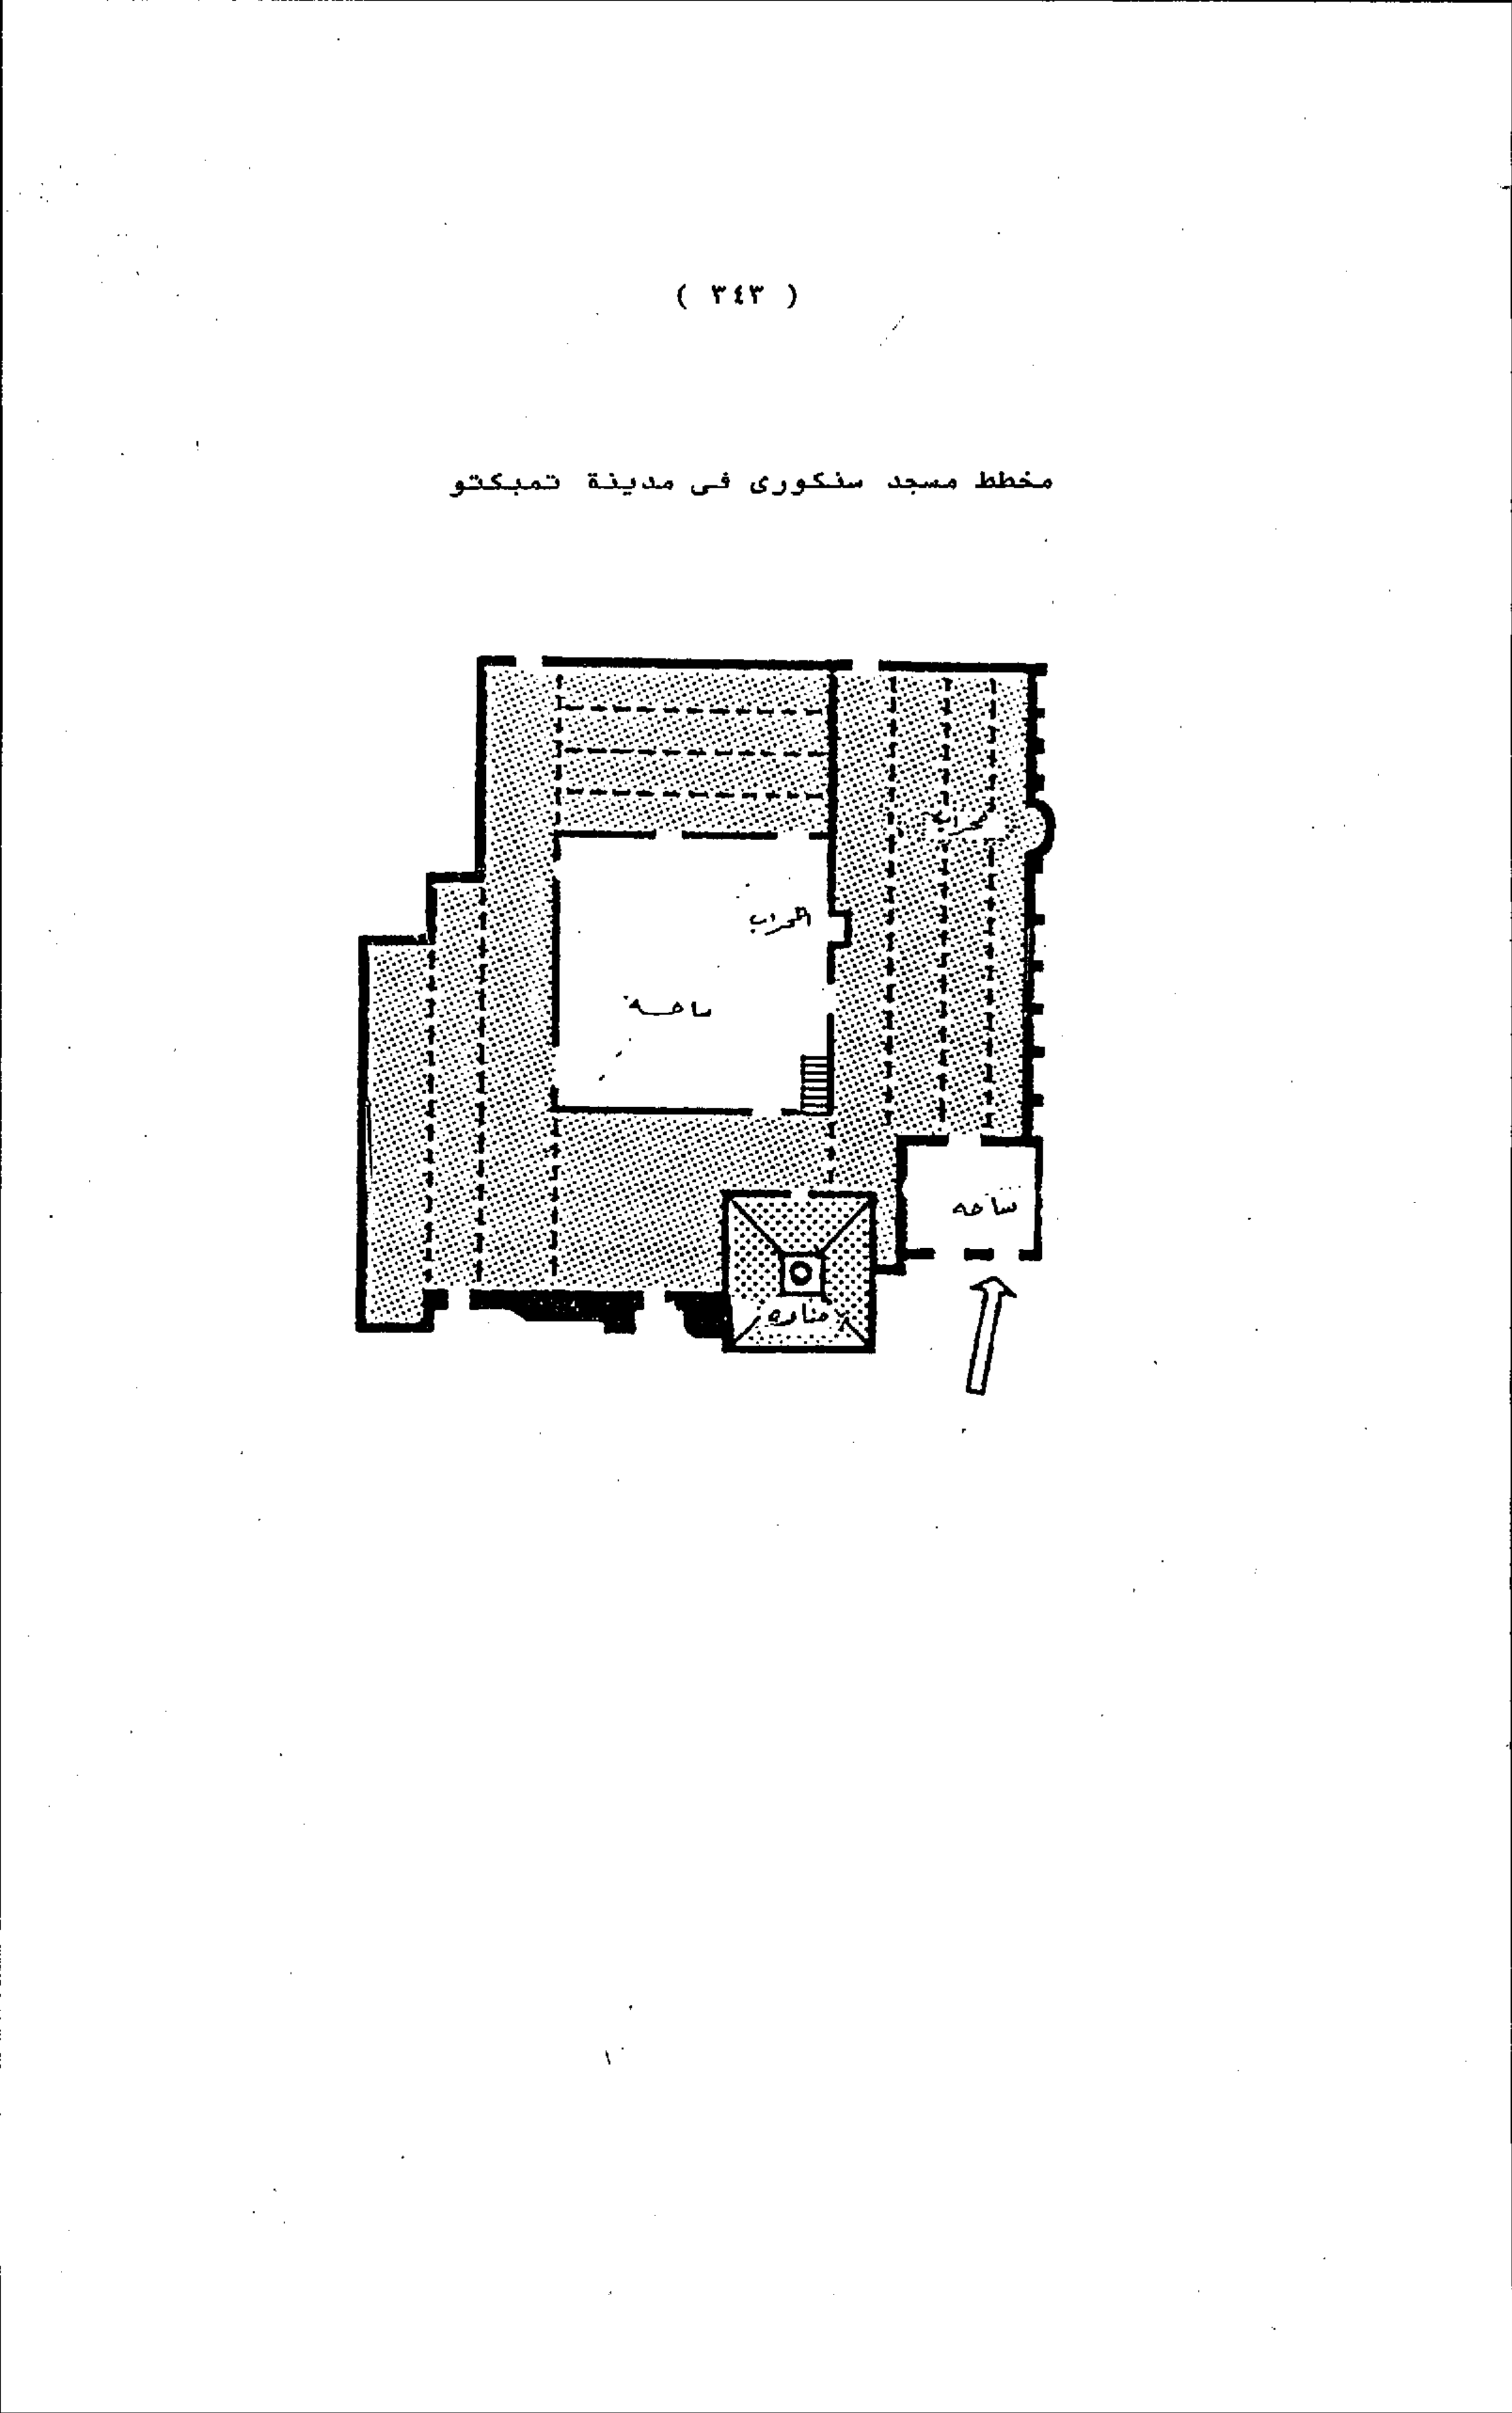 ( ٣٤٣ )
مخطط مسجد سنكورى فى مدينة تمبكتو
محراب
المحراب
ساحة
ساحه
مناره